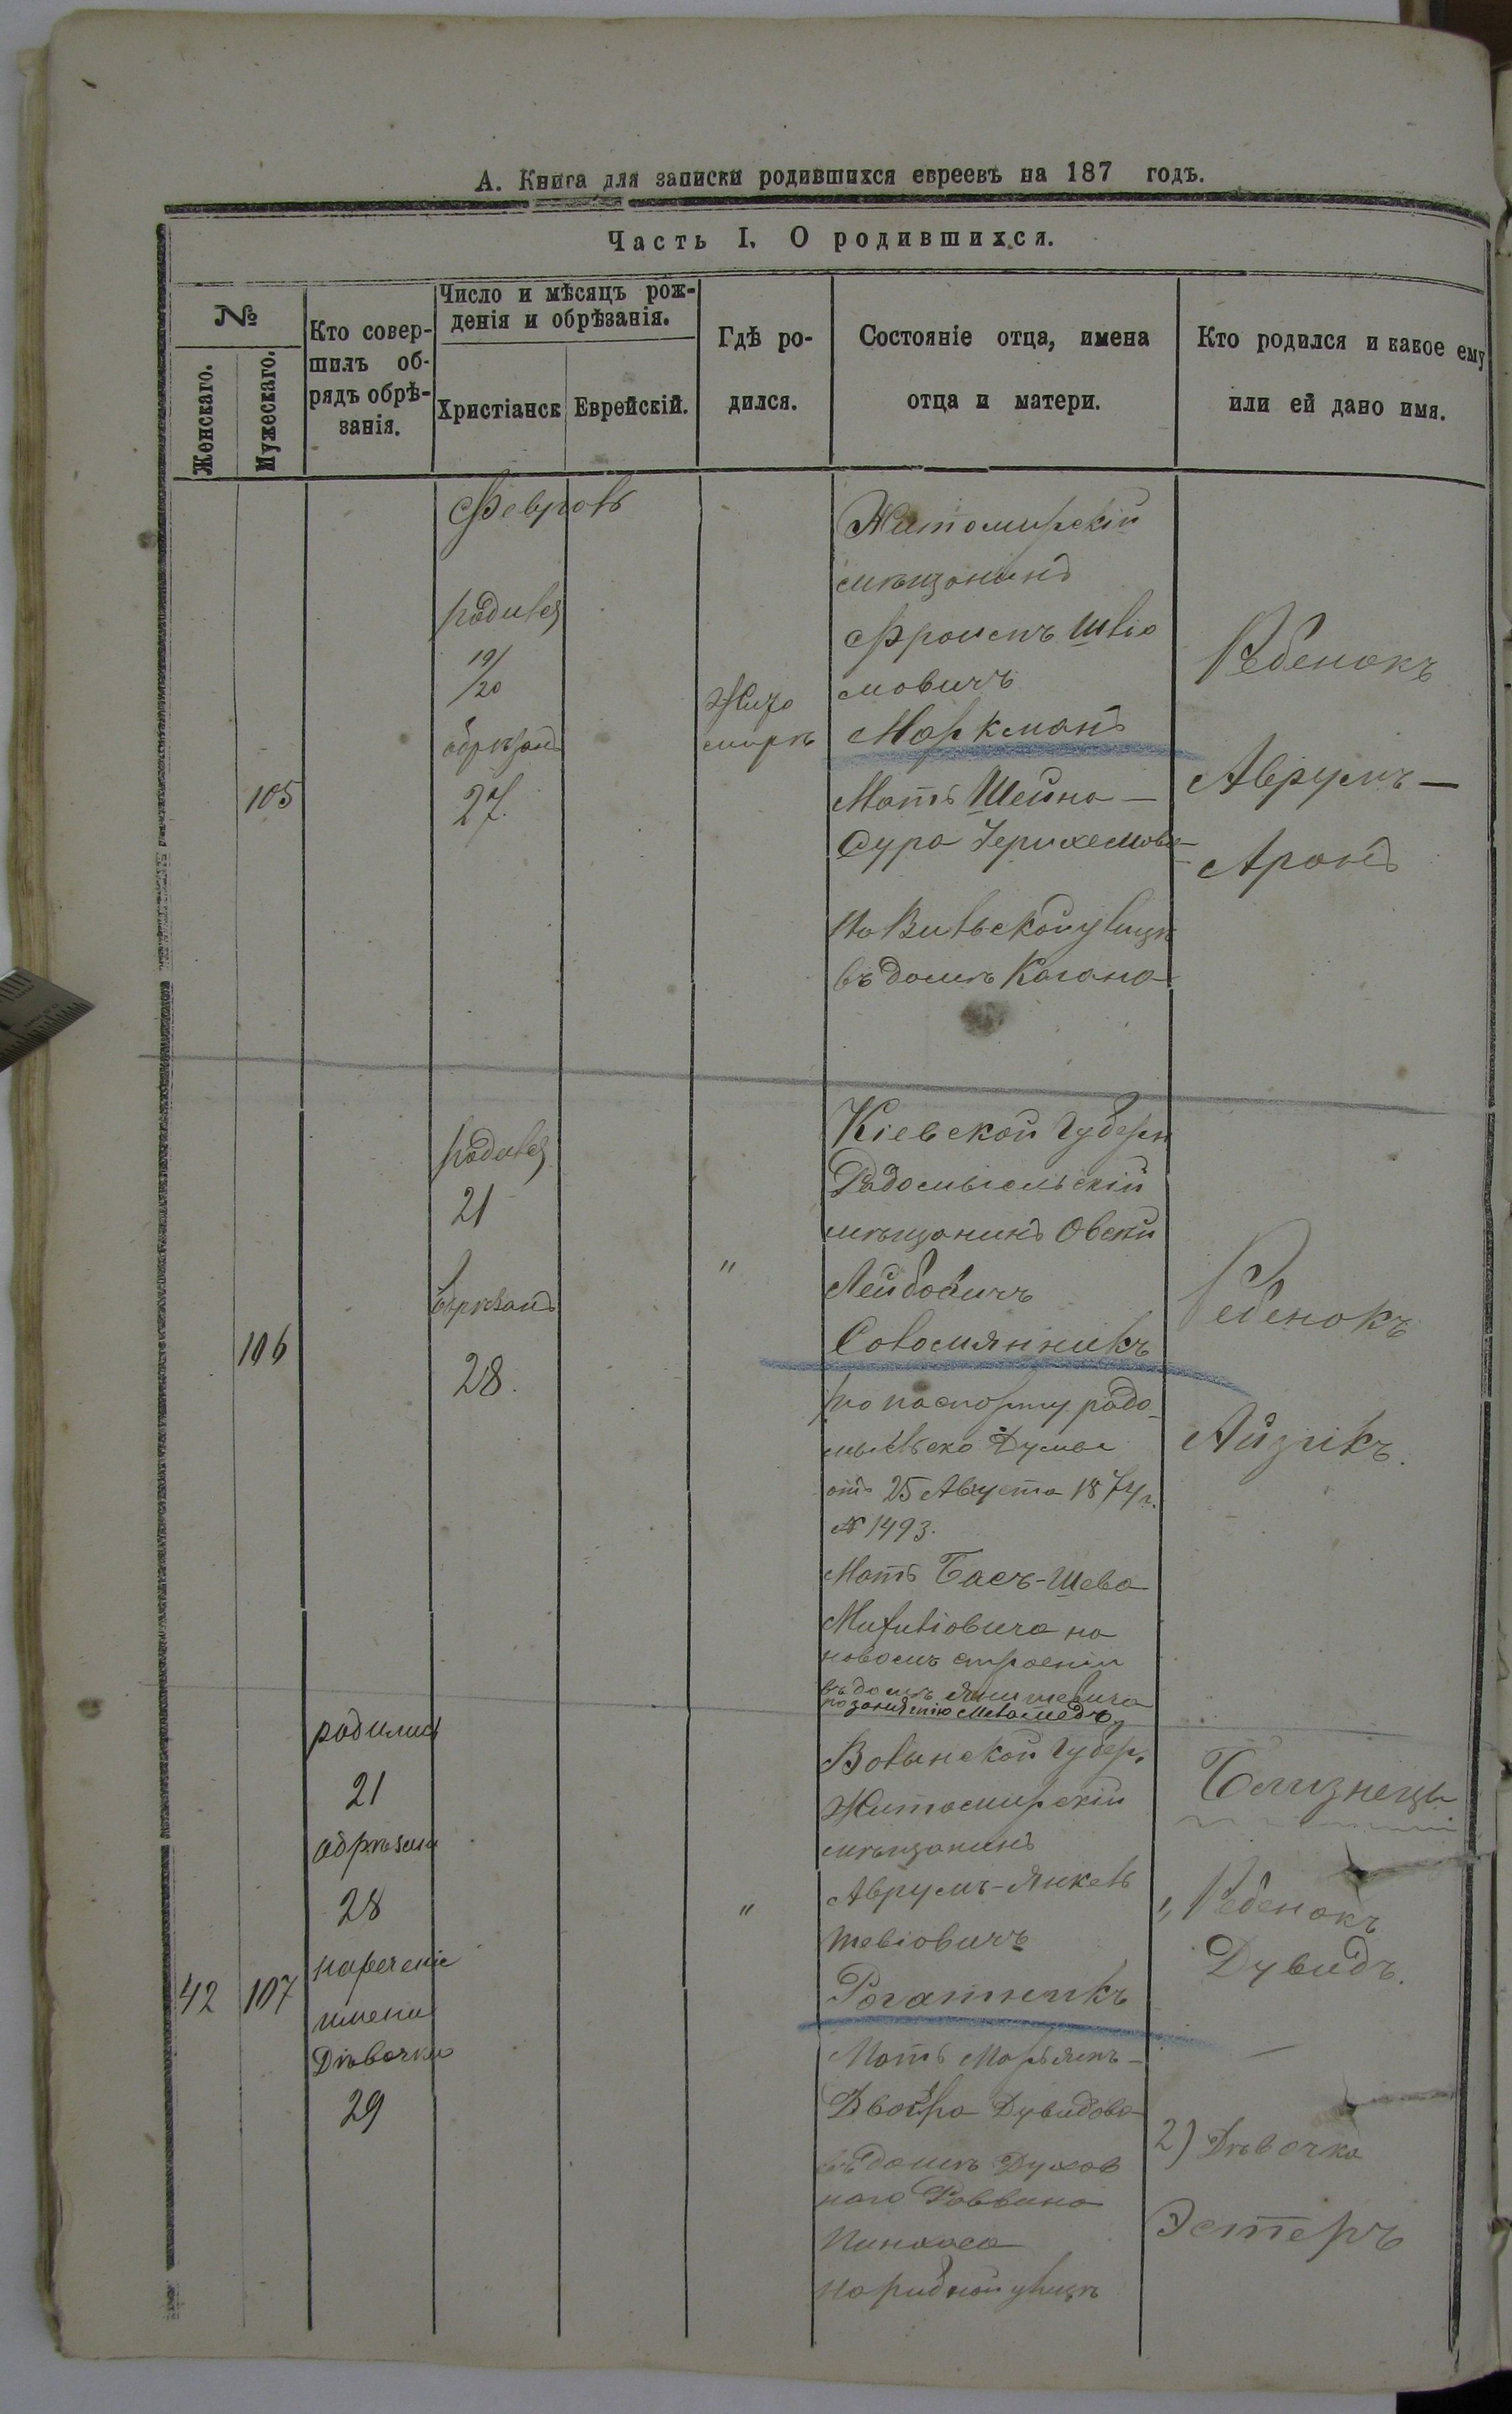 А. Книга для записки родившихся евреевъ на 187 годъ.
Часть I. О родившихся.
№
Женскаго.
Мужескаго.
Кто совер-
шилъ об-
рядъ обрѣ-
занія.
Число и мѣсяцъ рож-
денія и обрѣзанія.
Христіанск
Еврейскій.
Гдѣ ро-
дился.
Состояніе отца, имена
отца и матери.
Кто родился и какое ему
или ей дано имя.
105
Февраль
родился
19/
/20
обрѣзанъ
27.
Жито
мирѣ
Житомирскій
мѣщанинъ
Фроимъ Шліо
мовичъ
Маркманъ
Мать Шейна —
Сура
на Вильской улицѣ
въ домѣ Кагана
Ребенокъ
Аврумъ —
Аронъ
106
родился
21
обрѣзанъ
28.
"
Кіевской Губерн
Радомысльскій
мѣщанинъ Овсей
Лейбовичъ
Соломянникъ
по паспорту радо
мысльско Думы
отъ 25 Августа 1874 г.
№ 1493.
Мать Басъ-Шева
на
новомъ строеніи
въ домѣ Янишевича
по занятію Меламедъ
Ребенокъ
Айзикъ.
42
107
родились
21
обрѣзаніе
28
нареченіе
имени
Дѣвочки
29
"
Волынской Губер.
Житомирскій
мѣщанинъ
Аврумъ-Янкель
Тевіовичъ
Рогатникъ
Мать Марьямъ-
Двойра Дувидова
въ домѣ Духов
наго Раввина
Пинхаса
на рибной улицѣ
Близнецы
1, Ребенокъ
Дувидъ.
—
2) Дѣвочка
Эстеръ